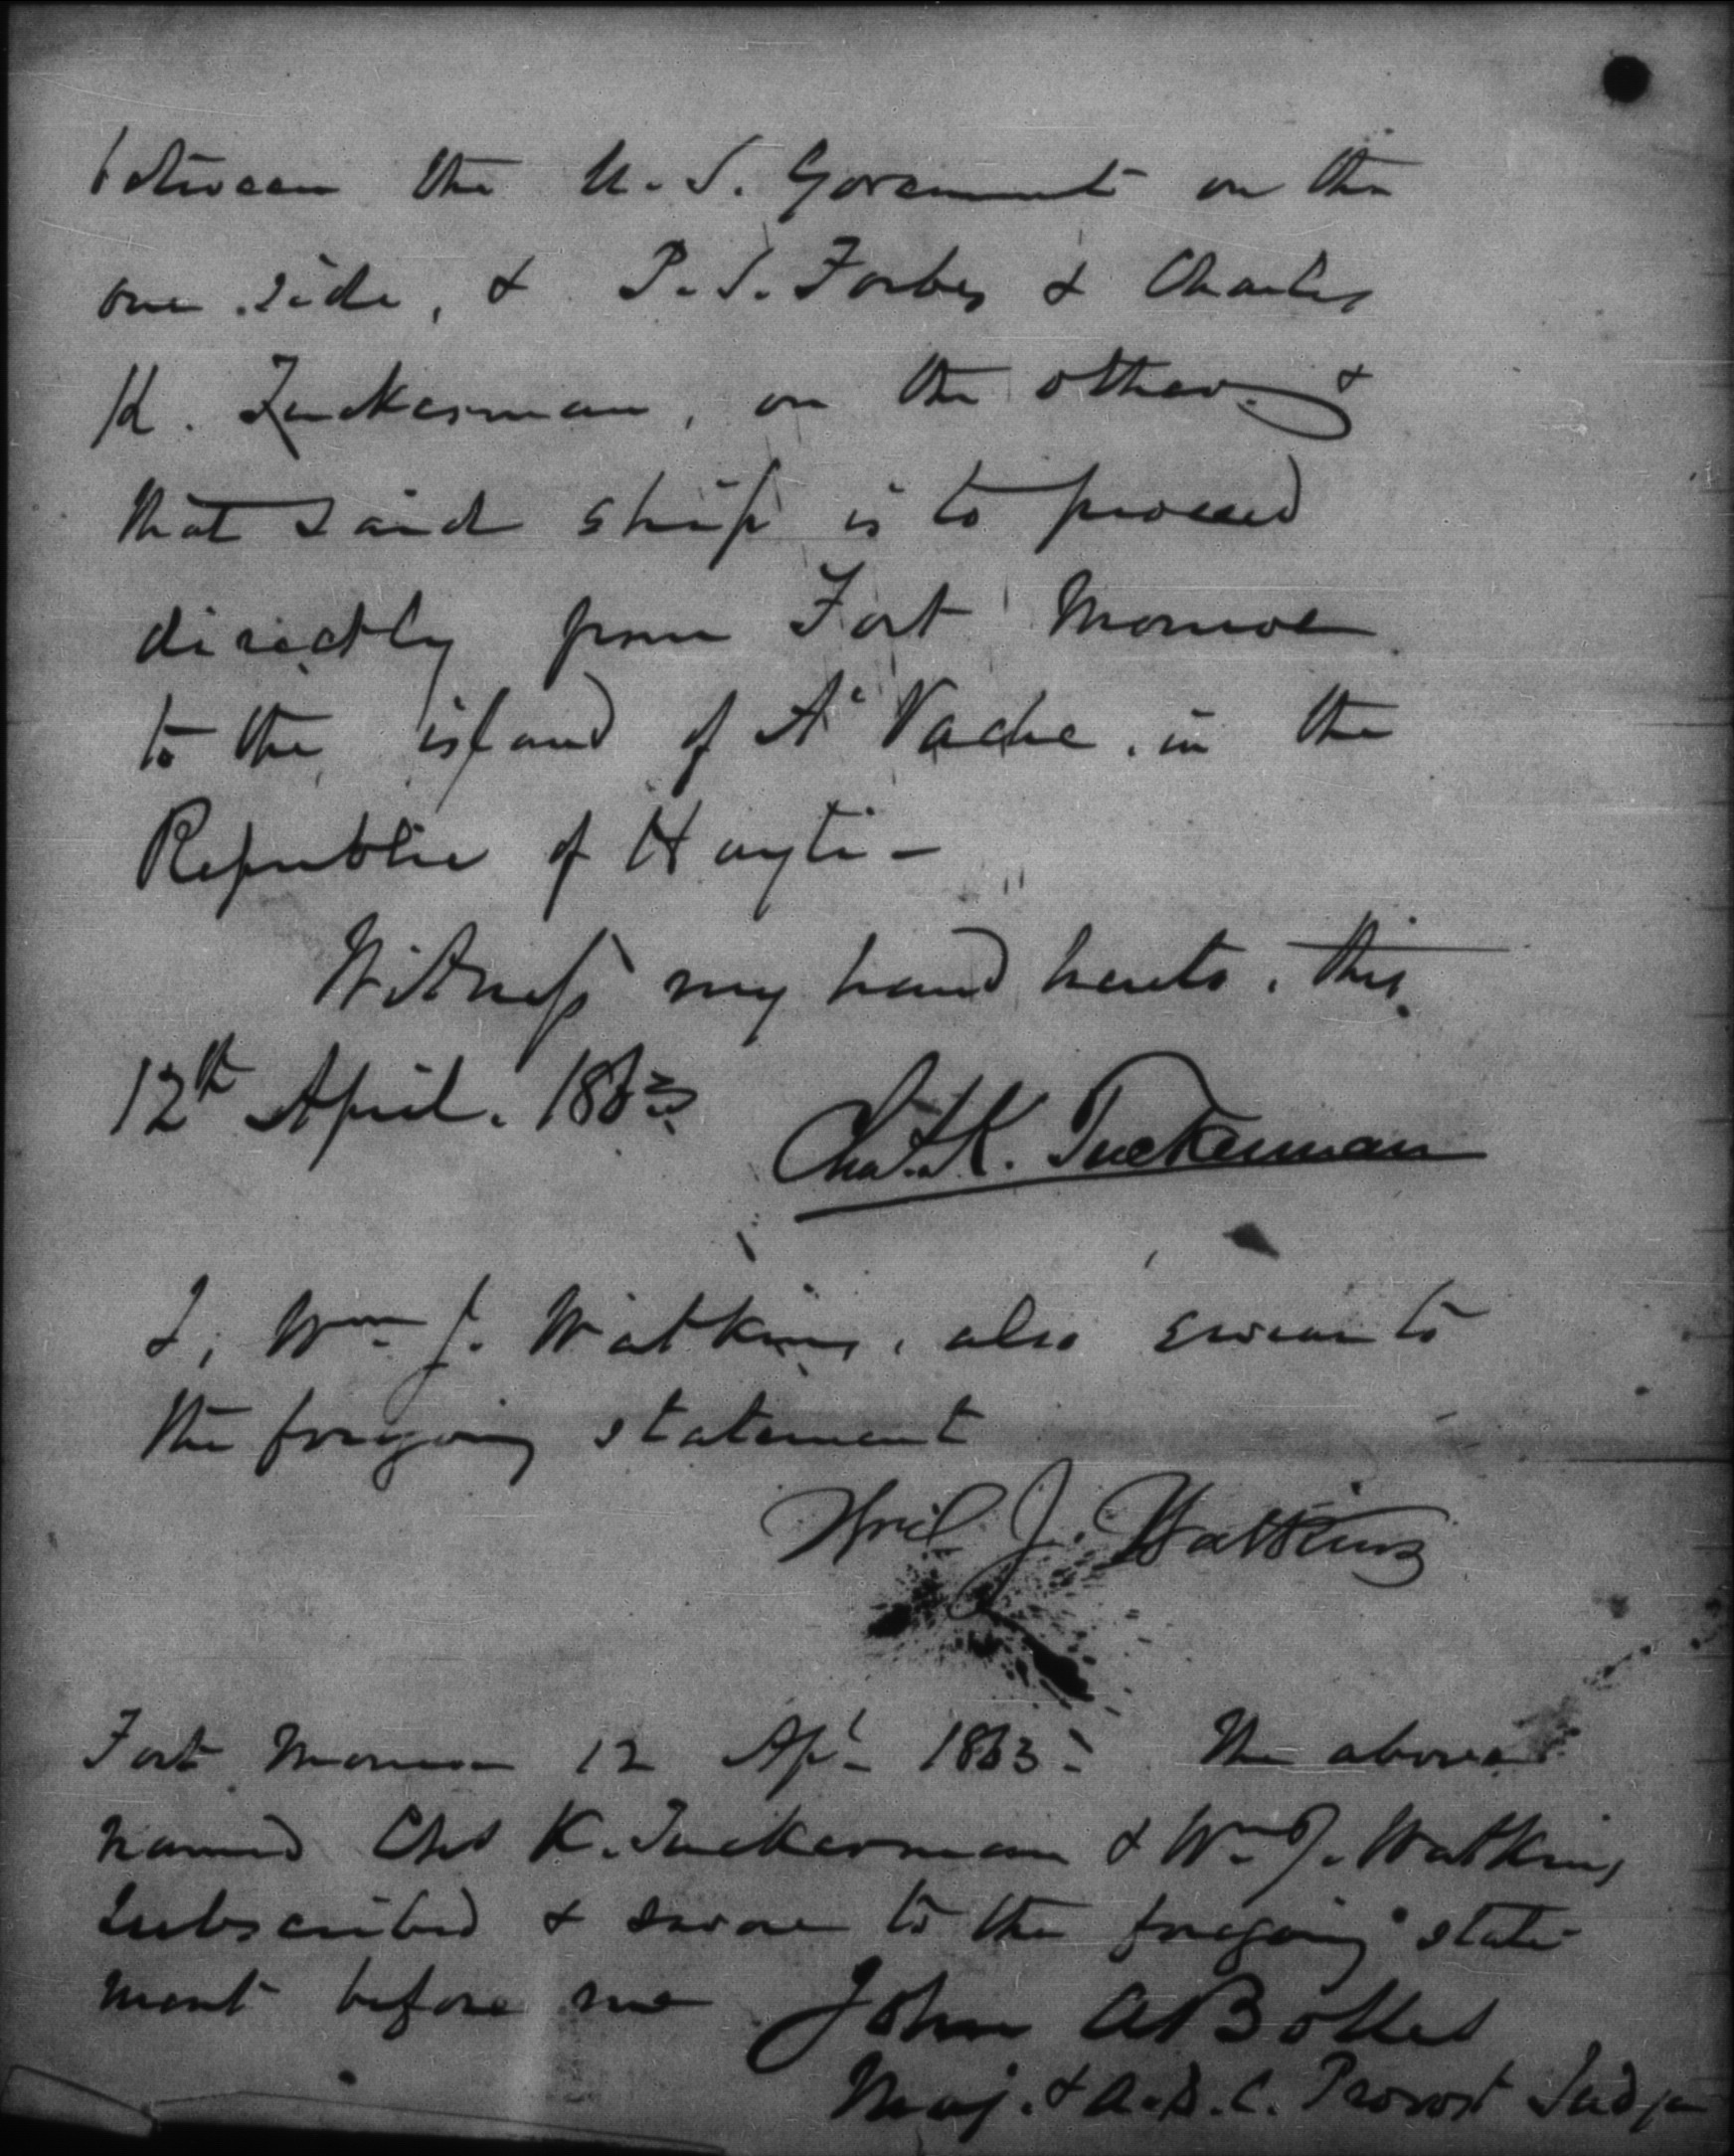 between the U. S. Goverment on the
one side, & P. S. Forbes & Charles
K. Tuckerman, on the other &
that said ship is to proceed
directly from Fort Monroe
to the island of A'Vache, in the
Republic of Hayti -
Witness my hand hereto, this
12th April. 1863
Chas. K. Tuckerman
I, Wm J. Watkins, also swear to
the foregoing statement
J. Watkins
Fort Monroe 12 Apl 1863 - The above
named Chs K. Tuckerman & Wm J. Watkins
subscribed & swore to the foregoing state
ment before me John A Bolles
Maj. & A.D.C. Provost Judge